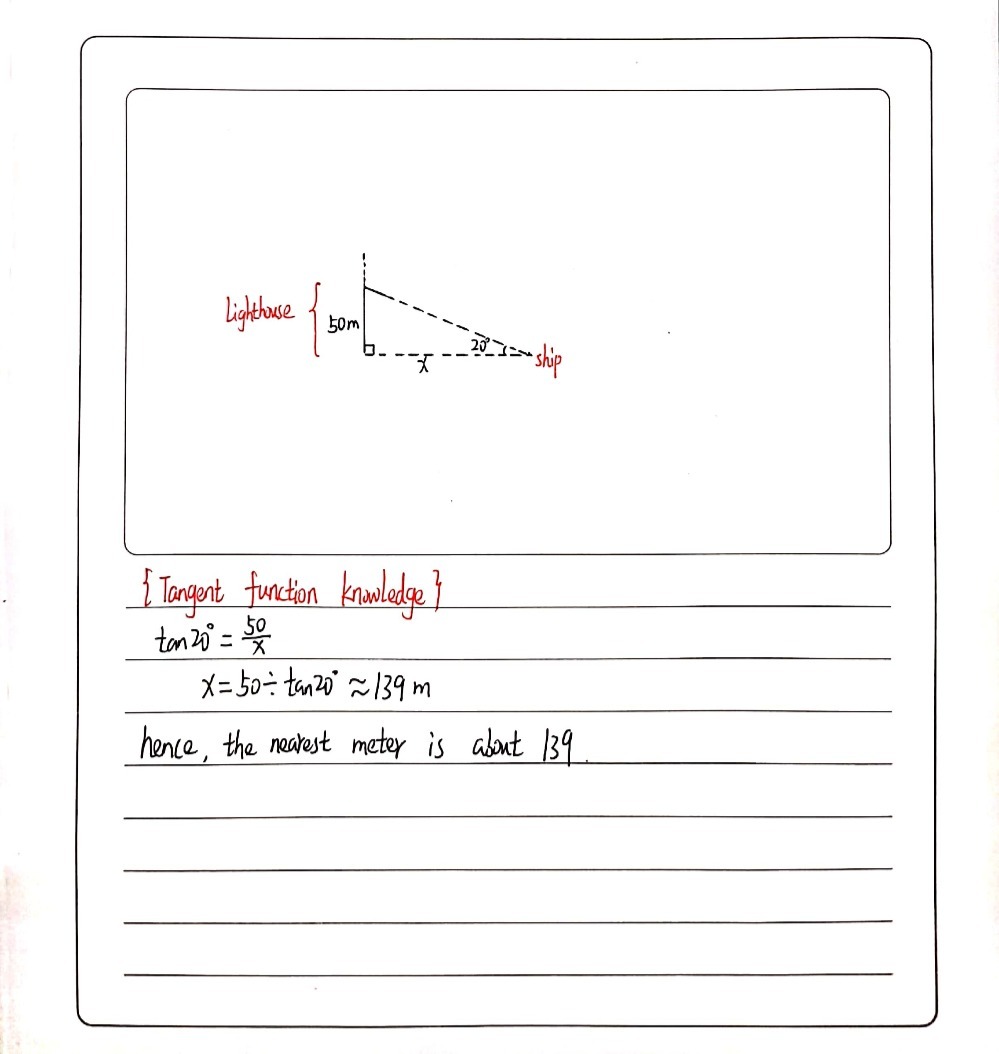 Lighthouse
50m
20°
x
ship
{Tangent function knowledge}
tan20° = 50/x
x = 50 ÷ tan20° ≈ 139 m
hence, the nearest meter is about 139.